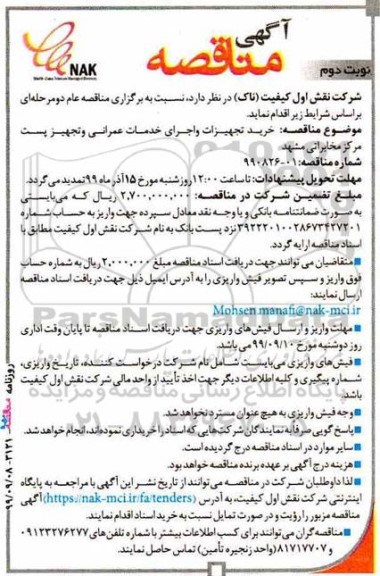 آگهی
مناقصه
NAK
نوبت دوم
شرکت نقش اول کیفیت (ناک) در نظر دارد، نسبت به برگزاری مناقصه عام دومرحله‌ای
براساس شرایط زیر اقدام نماید.
موضوع مناقصه: خرید تجهیزات واجرای خدمات عمرانی وتجهیز پست
مرکز مخابراتی مشهد
شماره مناقصه: ۰۱-۹۹۰۸۲۶
مهلت تحویل پیشنهادات: تاساعت ۱۲:۰۰ روزشنبه مورخ ۱۵آذرماه ۹۹تمدید می‌گردد.
مبلغ تضمین شرکت در مناقصه: ۲,۷۰۰,۰۰۰,۰۰۰ ریال که می‌بایستی
به صورت ضمانتنامه بانکی و یا وجه نقد معادل سپرده جهت واریز به حساب شماره
نزد پست بانک به نام شرکت نقش اول کیفیت مطابق با
اسناد مناقصه ارایه گردد.
متقاضیان می توانند جهت دریافت اسناد مناقصه مبلغ ۲,۰۰۰,۰۰۰ ریال به شماره حساب
فوق واریز و سپس تصویر فیش واریزی را به آدرس ایمیل ذیل جهت دریافت اسناد مناقصه
ارسال نمایند:
Mohsen.manafi@nak-mci.ir
مهلت واریز و ارسال فیش‌های واریزی جهت دریافت اسناد مناقصه تا پایان وقت اداری
روز دوشنبه مورخ ۹۹/۰۹/۱۰ می باشد.
فیش‌های واریزی می‌بایست شامل نام شرکت درخواست کننده، تاریخ واریزی،
شماره پیگیری و کلیه اطلاعات دیگر جهت اخذ تأیید از واحد مالی شرکت نقش اول کیفیت
باشد.
وجه فیش واریزی به هیچ عنوان مسترد نخواهد شد.
پاسخ گویی صرفا به نمایندگان شرکت‌هایی که اسناد را خریداری نموده‌اند، انجام خواهد شد.
سایر موارد در اسناد مناقصه درج گردیده است.
هزینه درج آگهی بر عهده برنده مناقصه خواهد بود.
لذا داوطلبان شرکت در مناقصه می‌توانند از تاریخ نشر این آگهی با مراجعه به پایگاه
اینترنتی شرکت نقش اول کیفیت، به آدرس (https://nak-mci.ir/fa/tenders) آگهی
مناقصه مزبور را رؤیت و در صورت تمایل نسبت به خرید اسناد اقدام نمایند.
مناقصه‌گران می‌توانند برای کسب اطلاعات بیشتر با شماره تلفن‌های ۰۹۱۲۳۲۷۶۲۷۷
و ۸۱۷۱۷۷۰۷ (واحد زنجیره تأمین) تماس حاصل نمایند.
روزنامه مناقصه ۹۹/۰۹/۰۸-۳۱۲۱
ParsNamad